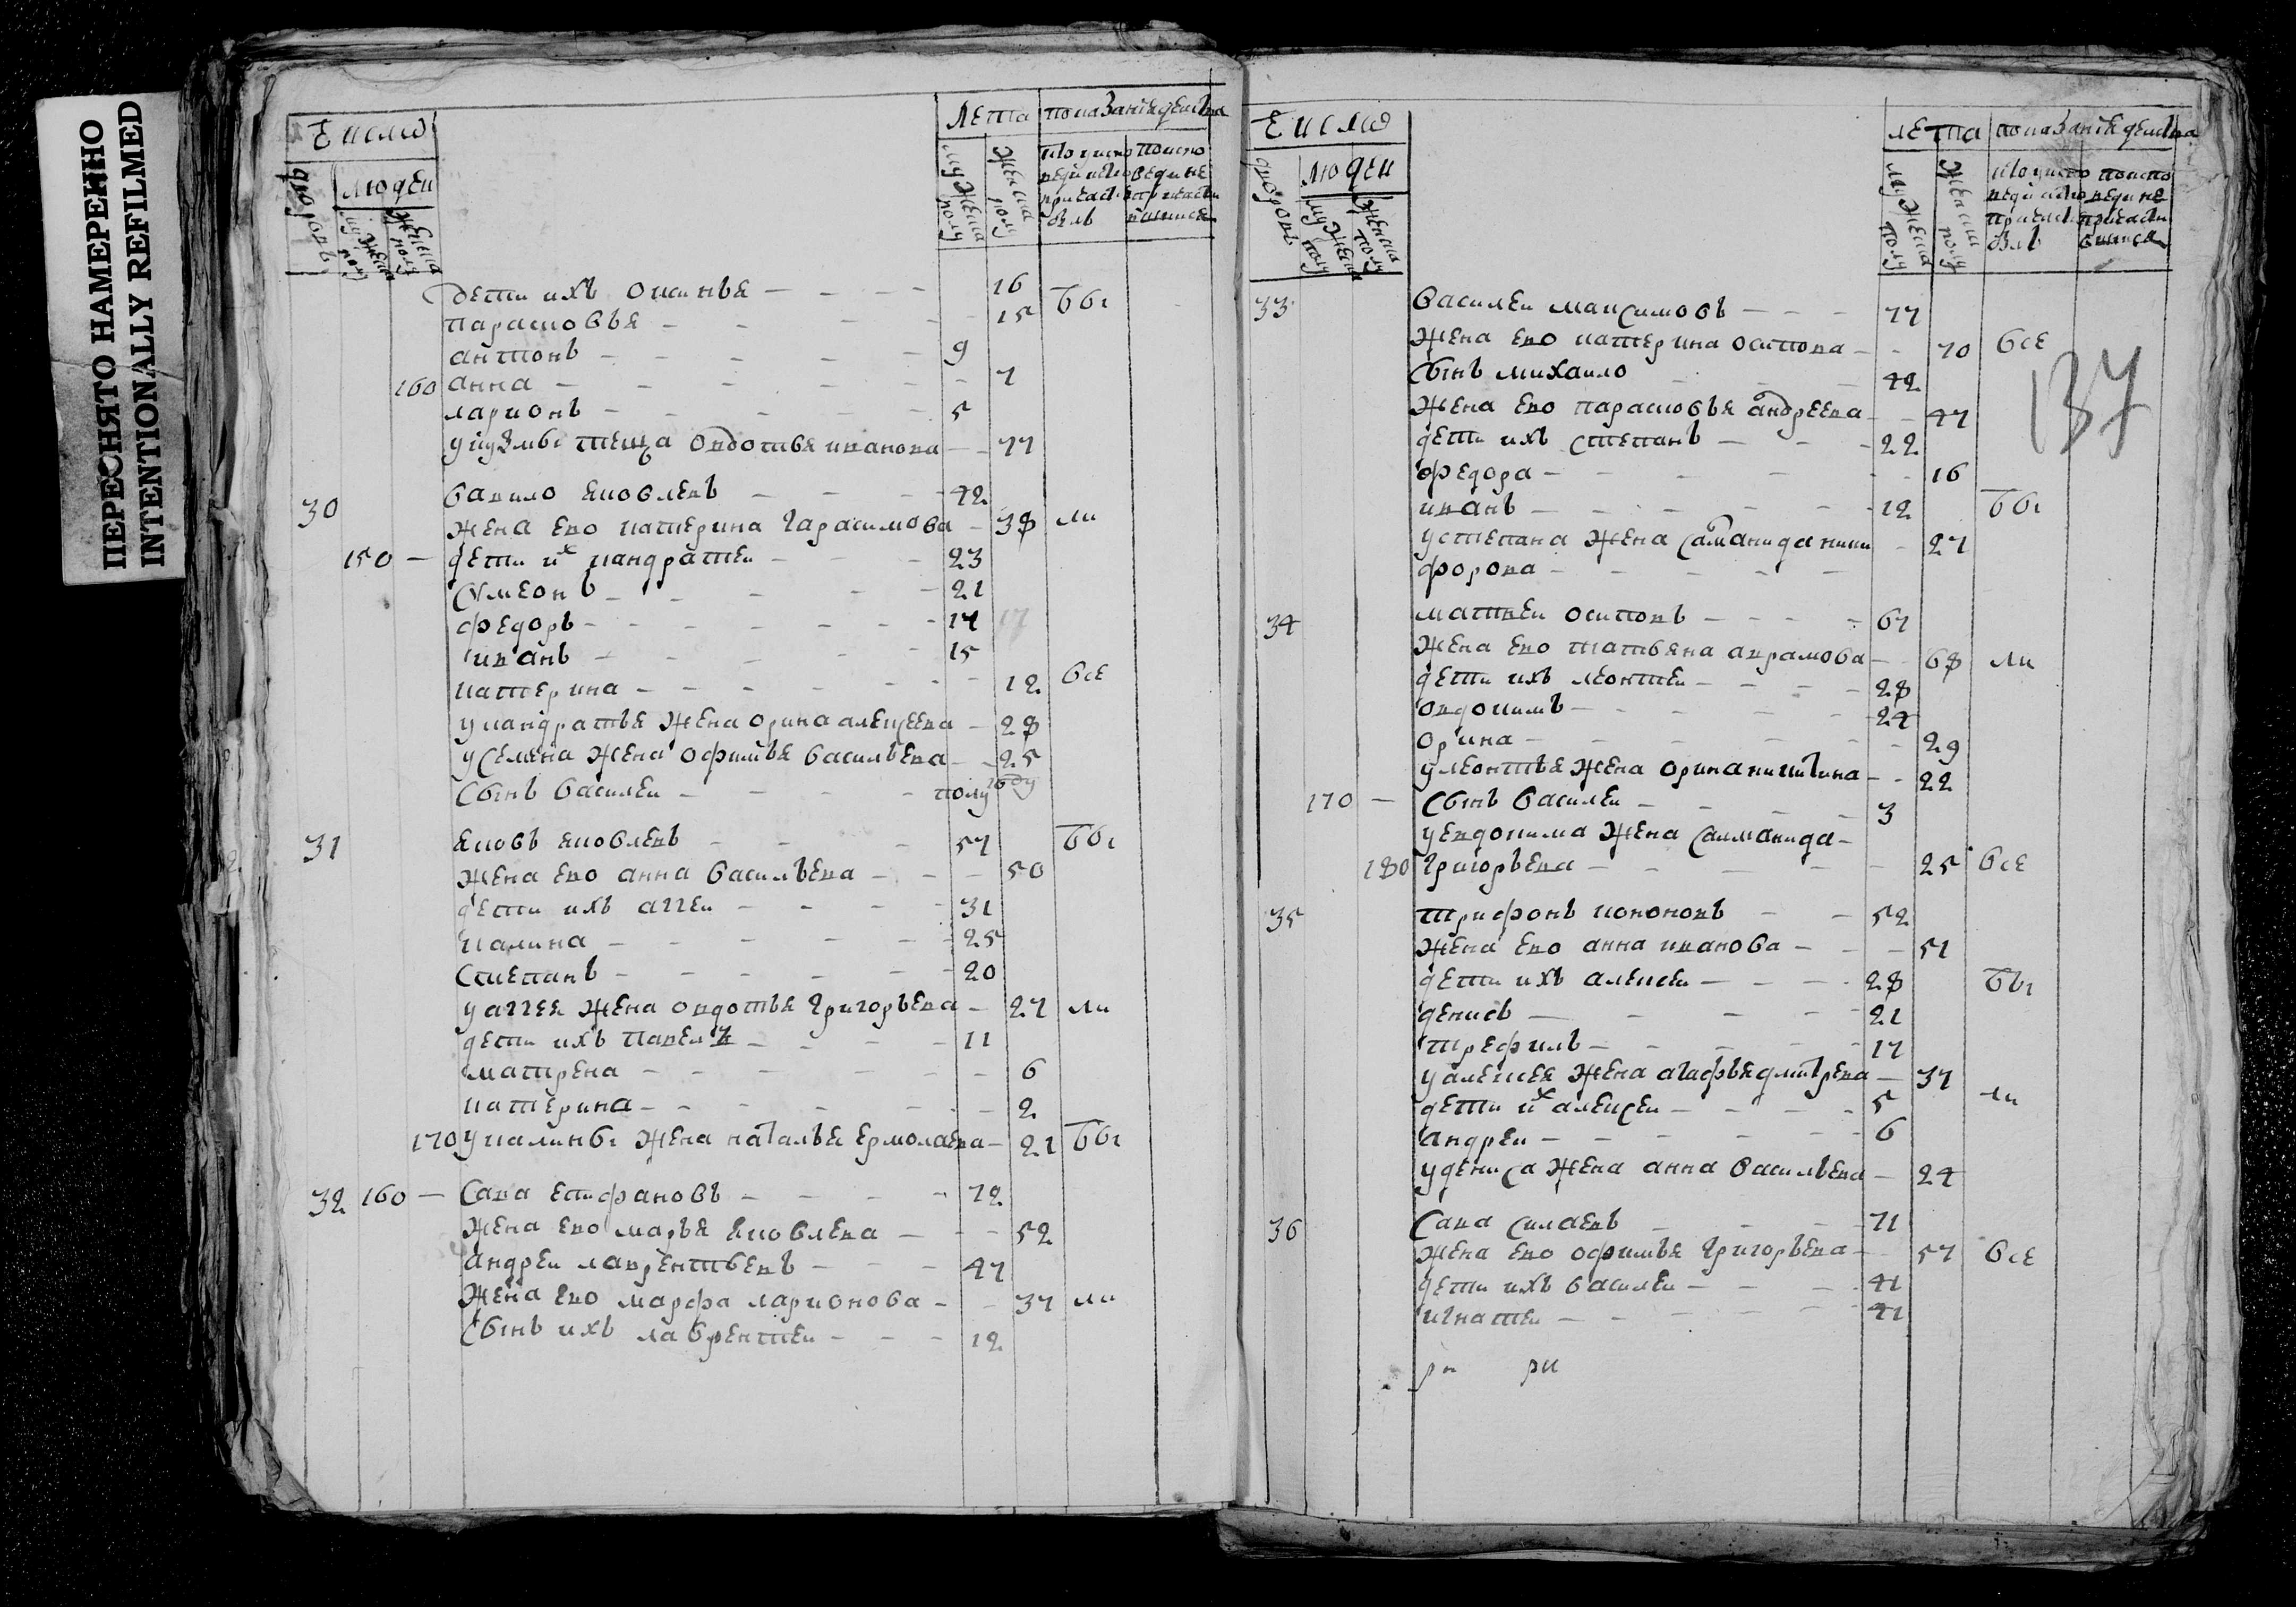 ПЕРЕСНЯТО НАМЕРЕННО
INTENTIONALLY REFILMED
число
людеи
дворовъ
мужеска полу
женска полу
лета
мужеска полу
женска полу
показание действа
дети ихъ
15 бы
парасковья 15
антонъ 9
160 анна 7
ларионъ 5
у кузмы теща овдотья иванова 77
30 вавило яковлевъ 42
жена ево катерина гарасимова 38 ли
150 дети их кандратеи 23
симеонъ 21
федоръ 17 17
иванъ 15
катерина 12 все
у кандратья жена орина алексеева 28
у семена жена офимья васильева 25
сынъ василеи полугоду
31 яковъ яковлевъ 57 бы
жена ево анна васильева 50
дети ихъ аггеи 31
калина 25
степанъ 20
у аггея жена овдотья григорьева 27 ли
дети ихъ павелъ 11
матрена 6
катерина 2
170 у калины жена наталья ермолаева 21 бы
32 160 сава епифановъ 72
жена ево марья яковлева 52
андреи лаврентьевъ 47
жена ево марфа ларионова 37 ли
сынъ ихъ лаврентеи 12
число
людеи
дворовъ
мужеска полу
женска полу
лета
мужеска полу
женска полу
показание действа
137
33 василеи максимовъ 77
жена ево катерина осипова 70 все
сынъ михаило 42
жена ево парасковья андреева 47
дети ихъ степанъ 22
федора 16
иванъ 12 бы
у степана жена саломанида ники 27
форова
34 матвеи осиповъ 67
жена ево татьяна аврамова 68 ли
дети ихъ леонтеи 28
овдокимъ 24
орина 29
у леонтья жена орина никитина 22
170 сынъ василеи 3
у евдокима жена саламанида
180 григорьева 25 все
35 трифонъ кононовъ 52
жена ево анна иванова 51
дети ихъ алексеи 28 бы
денисъ 21
трефилъ 17
у алексея жена агафья дмитрева 37
дети их алексеи 5 ли
андреи 6
у дениса жена анна васильева 24
36 сава силаевъ 71
жена ево офимья григорьева 57 все
дети ихъ василеи 41
игнатеи 41